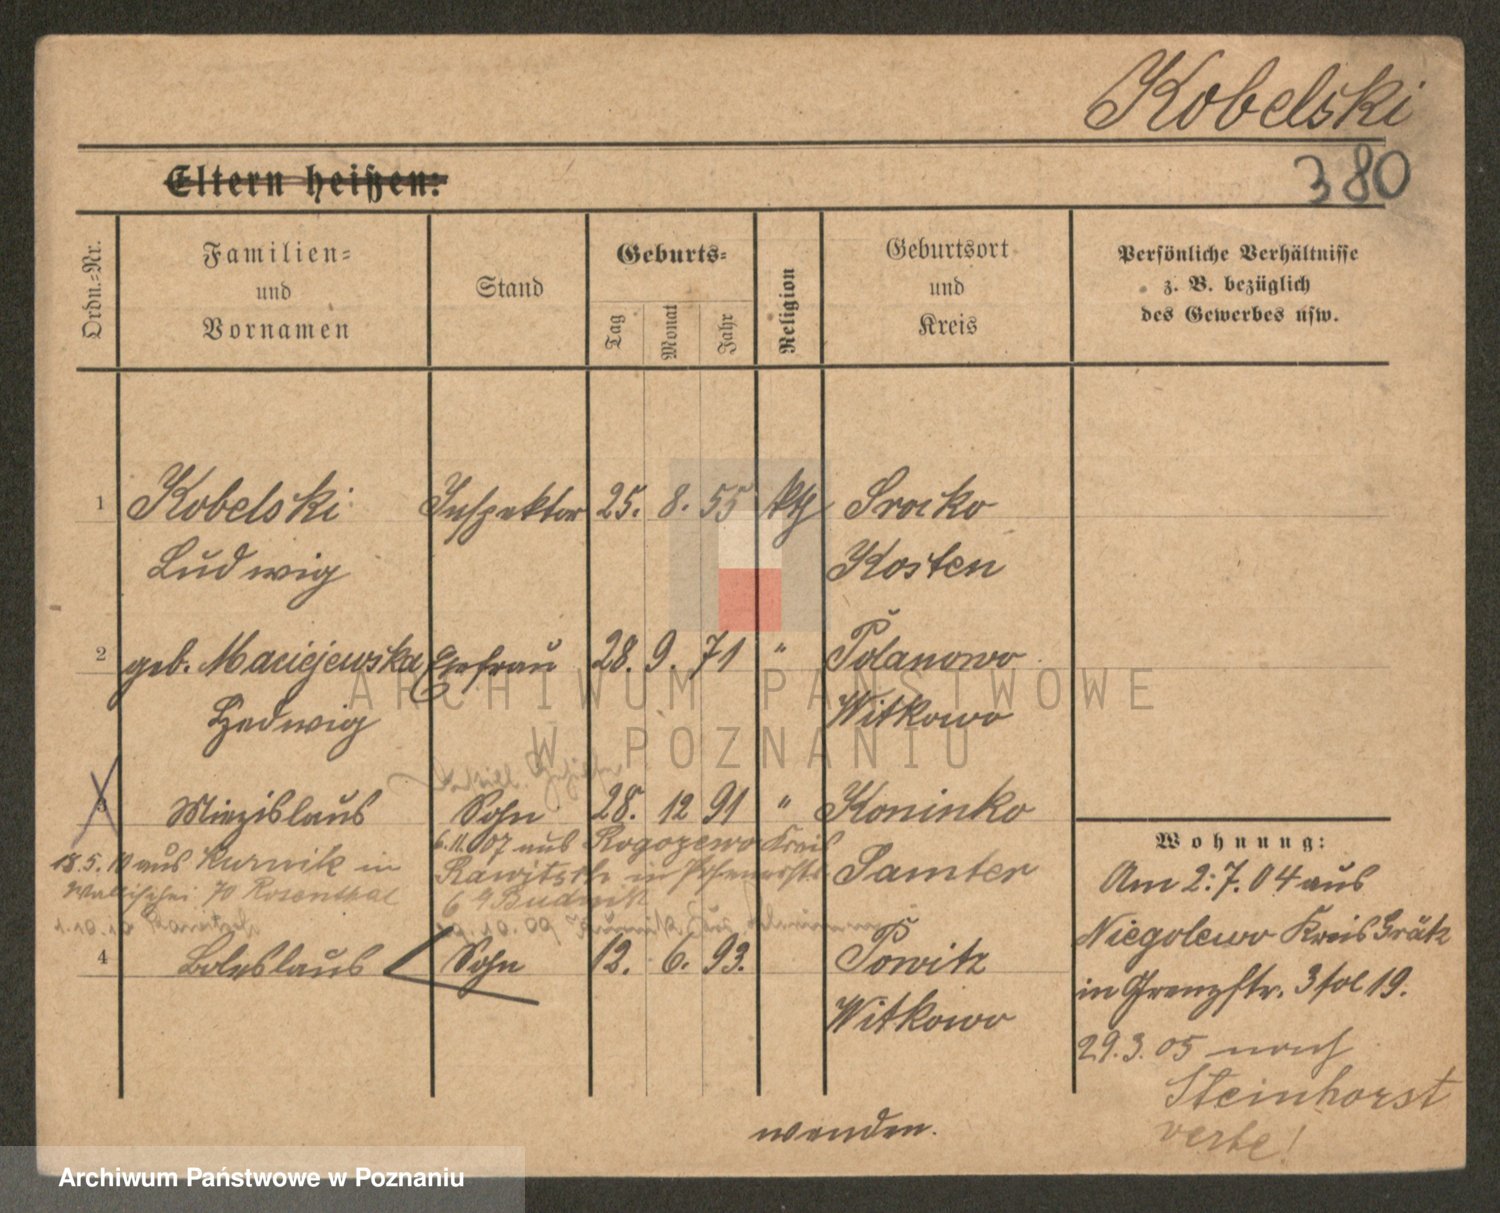 Kobelski
380
Eltern heißen:
Ordn.=Nr.
Familien=
und
Vornamen
Stand
Geburts=
Tag
Monat
Jahr
Religion
Geburtsort
und
Kreis
Persönliche Verhältnisse
z. B. bezüglich
des Gewerbes usw.
1 Kobelski Inspektor 25. 8. 55 kth Srocko
Ludwig Kosten
2 geb. Maciejewska Ehefrau 28. 9. 71 " Polanowo
Hedwig Witkowo
3 Miezislaus Sohn 28. 12 91 " Koninko
Samter
6.11.07 aus Rogozewo Kreis
Rawitsch in
18.5.10 aus Kurnik in
Wallischei 70 Rosenthal
4 Boleslaus Sohn 12. 6. 93. Powitz
Witkowo
Wohnung:
Am 2.7.04 aus
Niegolewo Kreis Grätz
in Grenzstr. 3 sol 19.
29.3.05 nach
Steinhorst
wenden.
ARCHIWUM PAŃSTWOWE
W POZNANIU
Archiwum Państwowe w Poznaniu